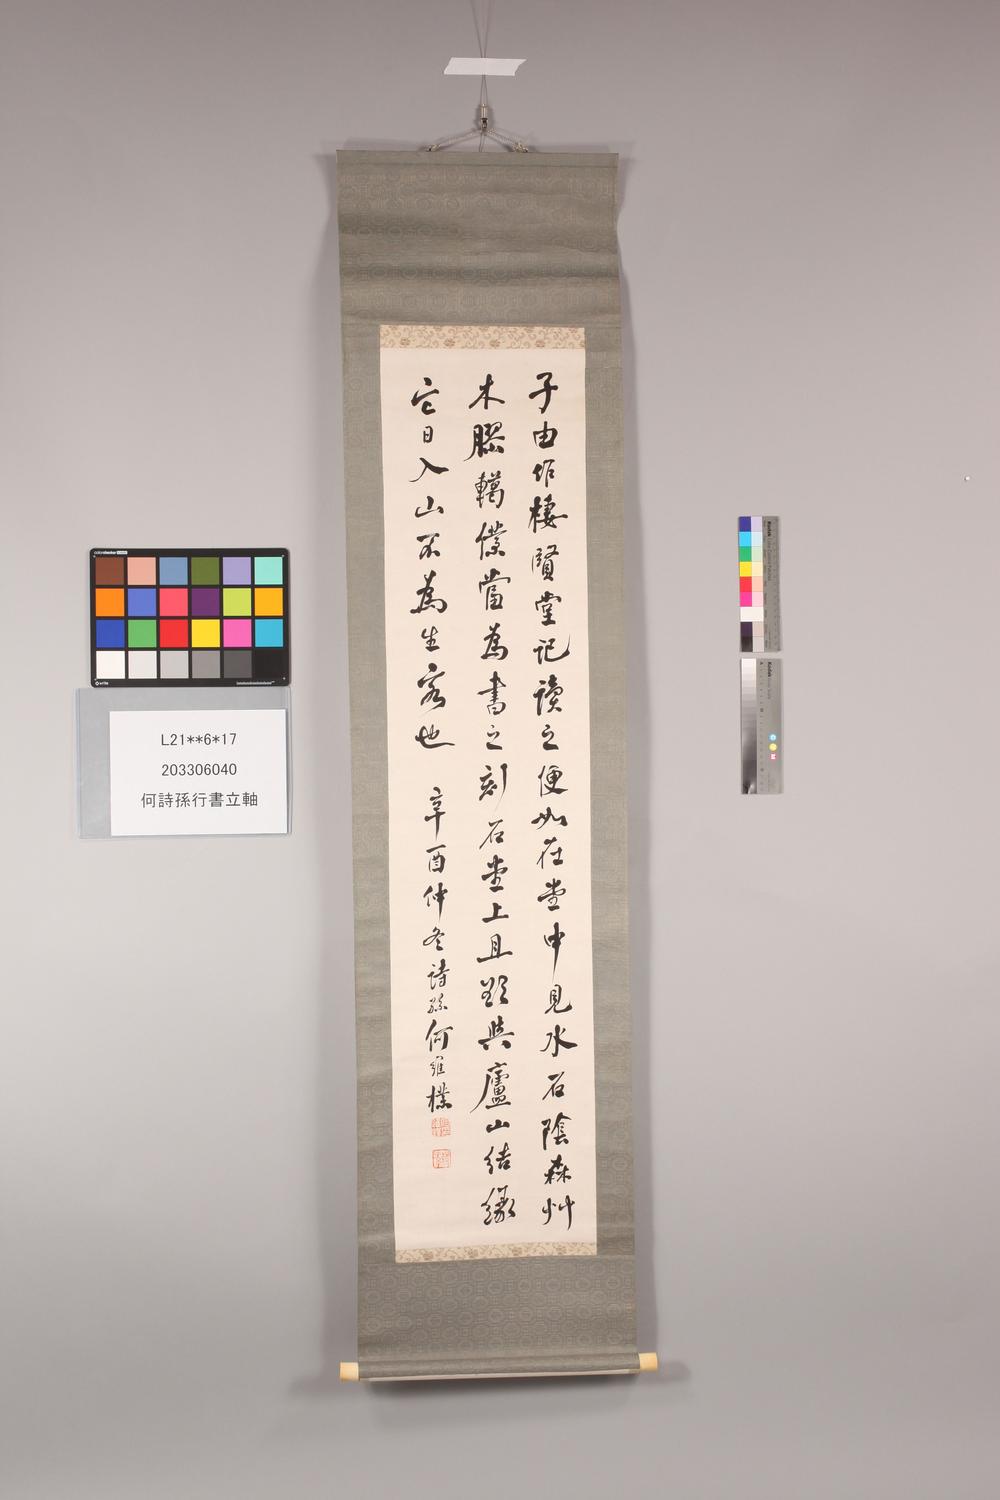 子由作棲賢堂記讀之便如在堂中見水石陰森艸
木膠轕僕當為書之刻石堂上且欲與廬山結緣
它日入山不為生客也
辛酉仲冬詩孫何維樸
L21**6*17
203306040
何詩孫行書立軸